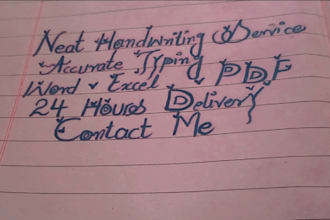 Neat Handwriting Service
Accurate Typing
Word & Excel PDF
24 Hours Delivery
Contact Me